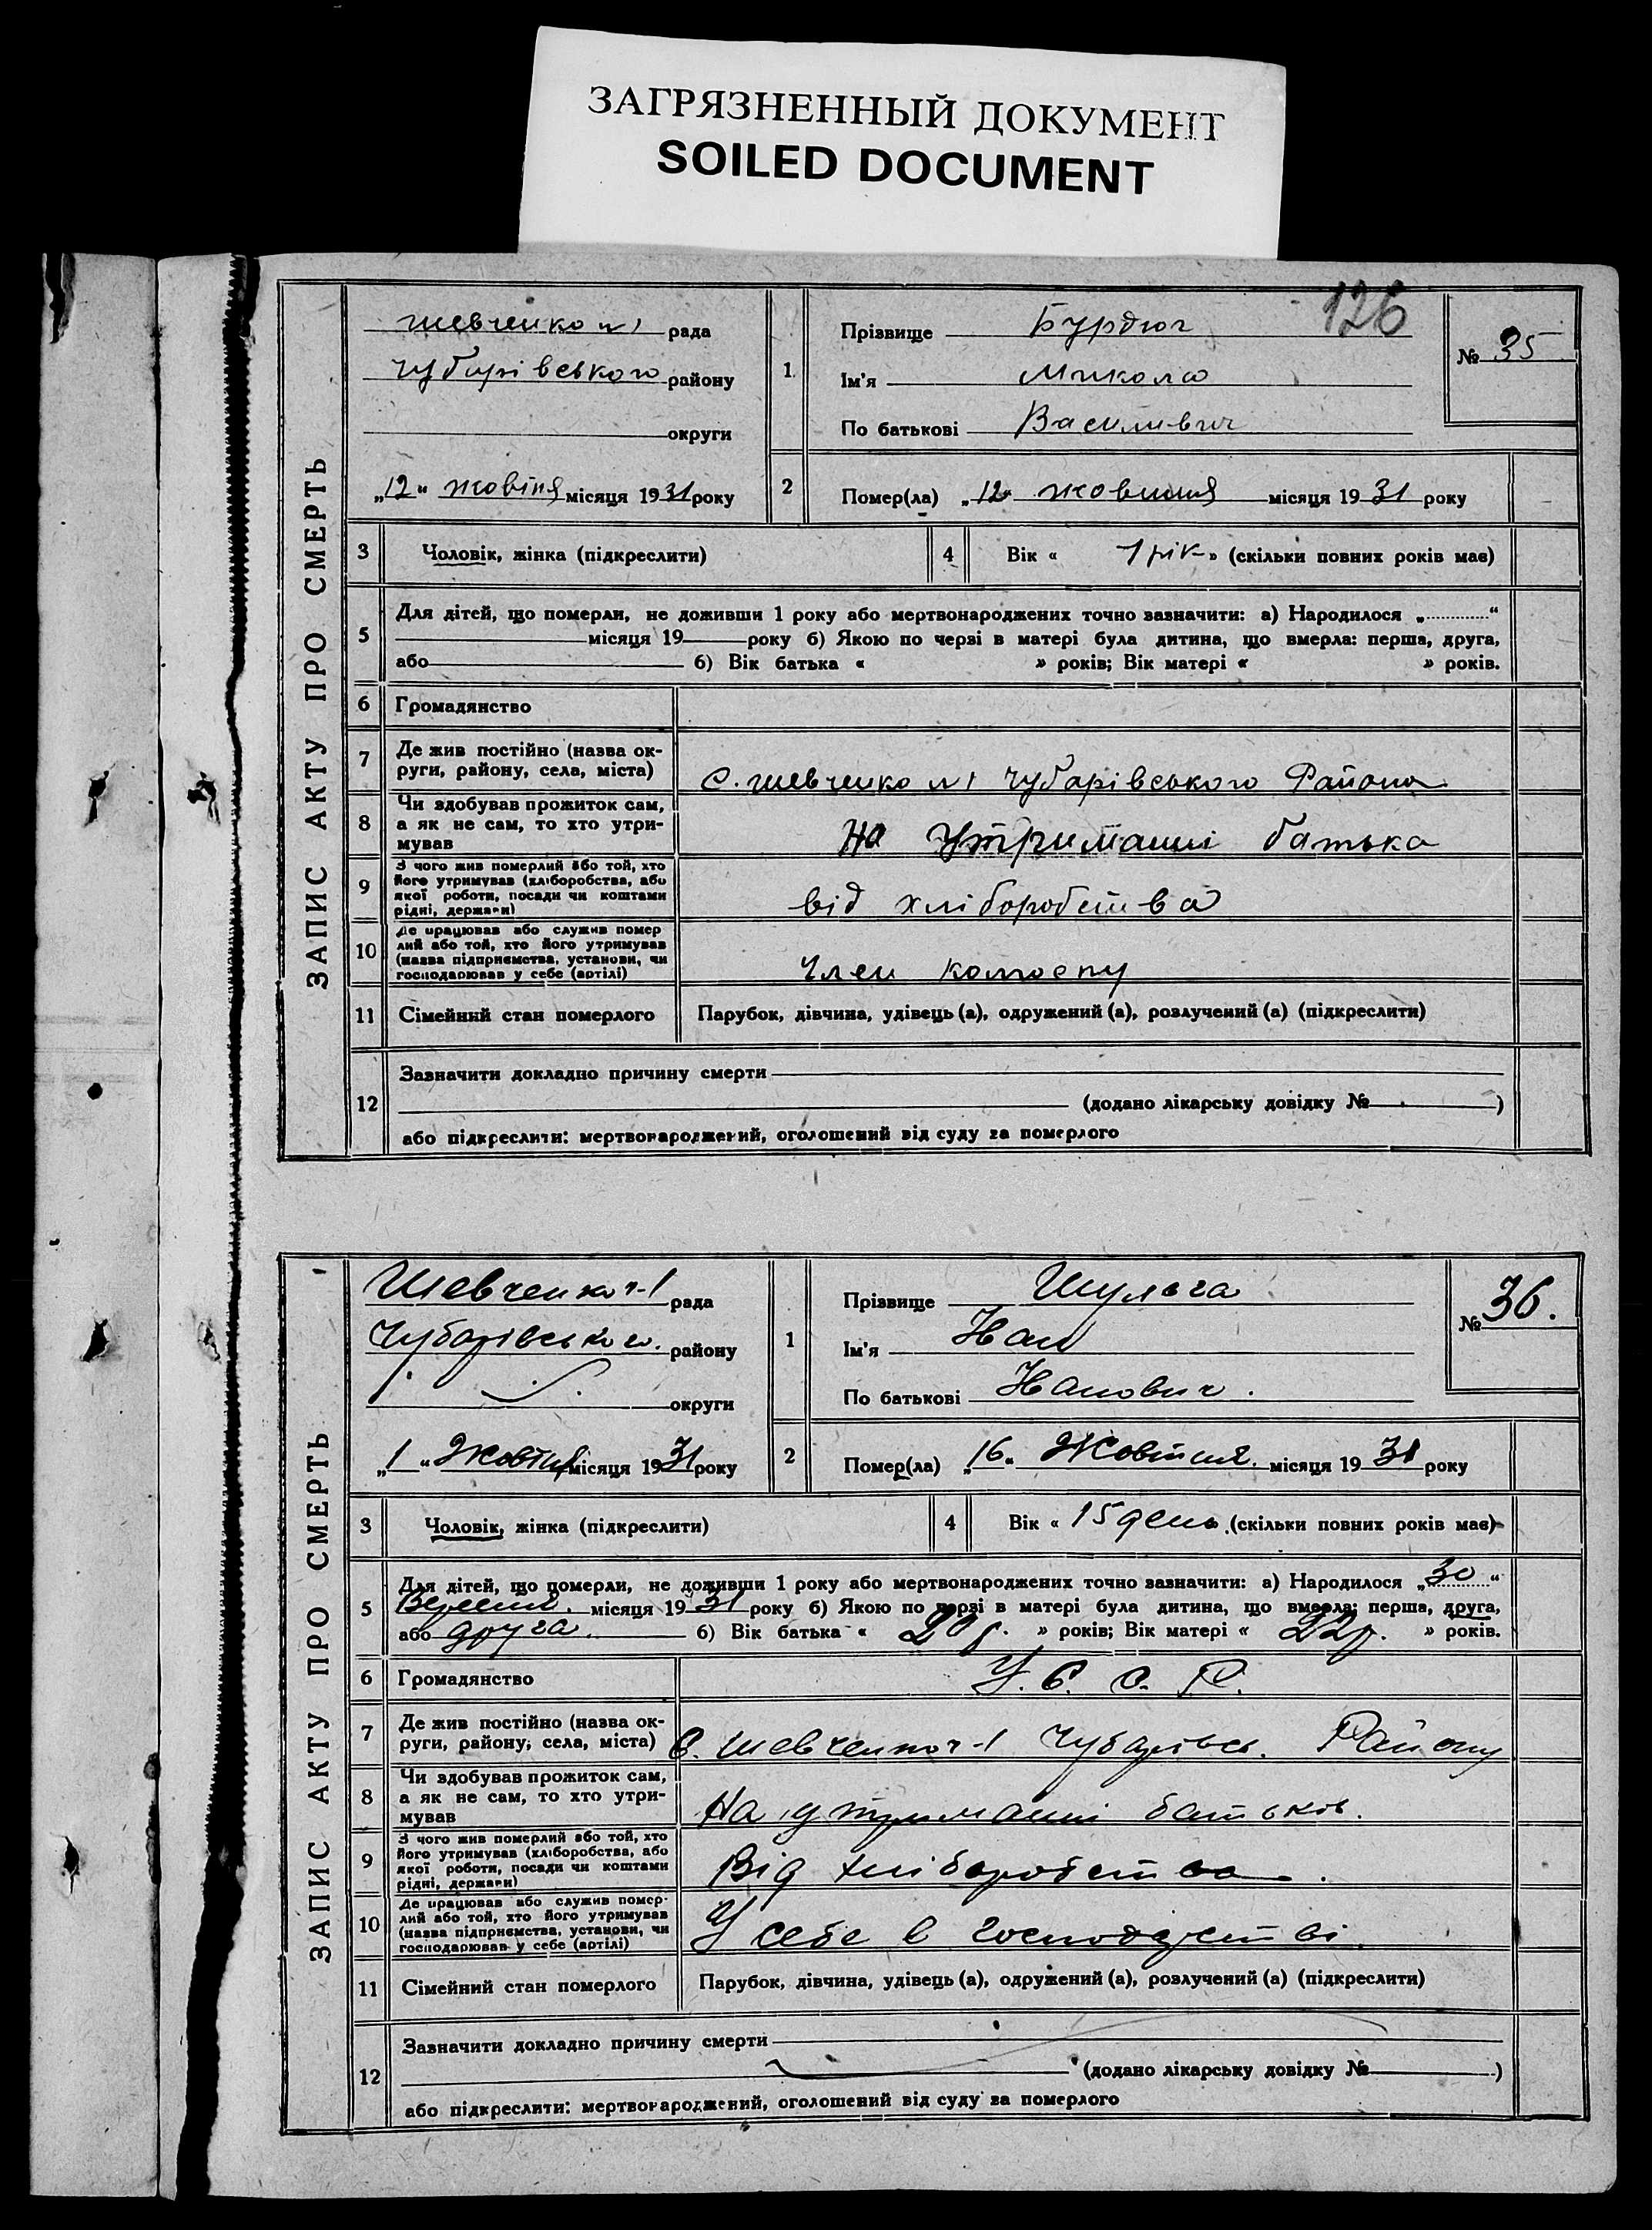 ЗАГРЯЗНЕННЫЙ ДОКУМЕНТ
SOILED DOCUMENT
126
ЗАПИС АКТУ ПРО СМЕРТЬ
Шевченко №1 рада
Чубарівського району
округи
„12“ жовтня місяця 1931 року
1
Прізвище Бурдюг
Ім'я Микола
По батькові Василивич
№ 35
2
Помер(ла) „12“ жовтня місяця 1931 року
3 Чоловік, жінка (підкреслити)
4 Вік « 1 рік » (скільки повних років має)
5
Для дітей, що померли, не доживши 1 року або мертвонароджених точно зазначити: а) Народилося „ “
місяця 19 року б) Якою по черзі в матері була дитина, що вмерла: перша, друга,
або б) Вік батька « » років; Вік матері « » років.
6 Громадянство
7 Де жив постійно (назва ок-
руги, району, села, міста) С. Шевченко №1 Чубарівського Района
8 Чи здобував прожиток сам,
а як не сам, то хто утри-
мував На Утриманні батька
9 З чого жив померлий або той, хто
його утримував (хліборобства, або
якої роботи, посади чи коштами
рідні, держави) від хліборобства
10 Де працював або служив помер
лий або той, хто його утримував
(назва підприємства, установи, чи
господарював у себе (артілі) Член
11 Сімейний стан померлого Парубок, дівчина, удівець (а), одружений (а), розлучений (а) (підкреслити)
12
Зазначити докладно причину смерти
(додано лікарську довідку № )
або підкреслити: мертвонароджений, оголошений від суду за померлого
ЗАПИС АКТУ ПРО СМЕРТЬ
Шевченко №-1 рада
Чубарівського. району
округи
„1“ Жовтня місяця 1931 року
1
Прізвище Шульга
Ім'я Иван
По батькові Иванович.
№ 36.
2
Помер(ла) „16“ Жовтня. місяця 1931 року
3 Чоловік, жінка (підкреслити)
4 Вік « 15 день. (скільки повних років має)
5
Для дітей, що померли, не доживши 1 року або мертвонароджених точно зазначити: а) Народилося „30“
Вересня. місяця 1931 року б) Якою по черзі в матері була дитина, що вмерла: перша, друга,
або друга. б) Вік батька « 20 р. » років; Вік матері « 22 р. » років.
6 Громадянство У. С. С. Р.
7 Де жив постійно (назва ок-
руги, району, села, міста) С. Шевченко №-1 Чубарівсь. Району
8 Чи здобував прожиток сам,
а як не сам, то хто утри-
мував На утриманні батьків.
9 З чого жив померлий або той, хто
його утримував (хліборобства, або
якої роботи, посади чи коштами
рідні, держави) Від хліборобства.
10 Де працював або служив помер-
лий або той, хто його утримував
(назва підприємства, установи, чи
господарював у себе (артілі) У себе в господарстві.
11 Сімейний стан померлого Парубок, дівчина, удівець (а), одружений (а), розлучений (а) (підкреслити)
12
Зазначити докладно причину смерти
(додано лікарську довідку № )
або підкреслити: мертвонароджений, оголошений від суду за померлого